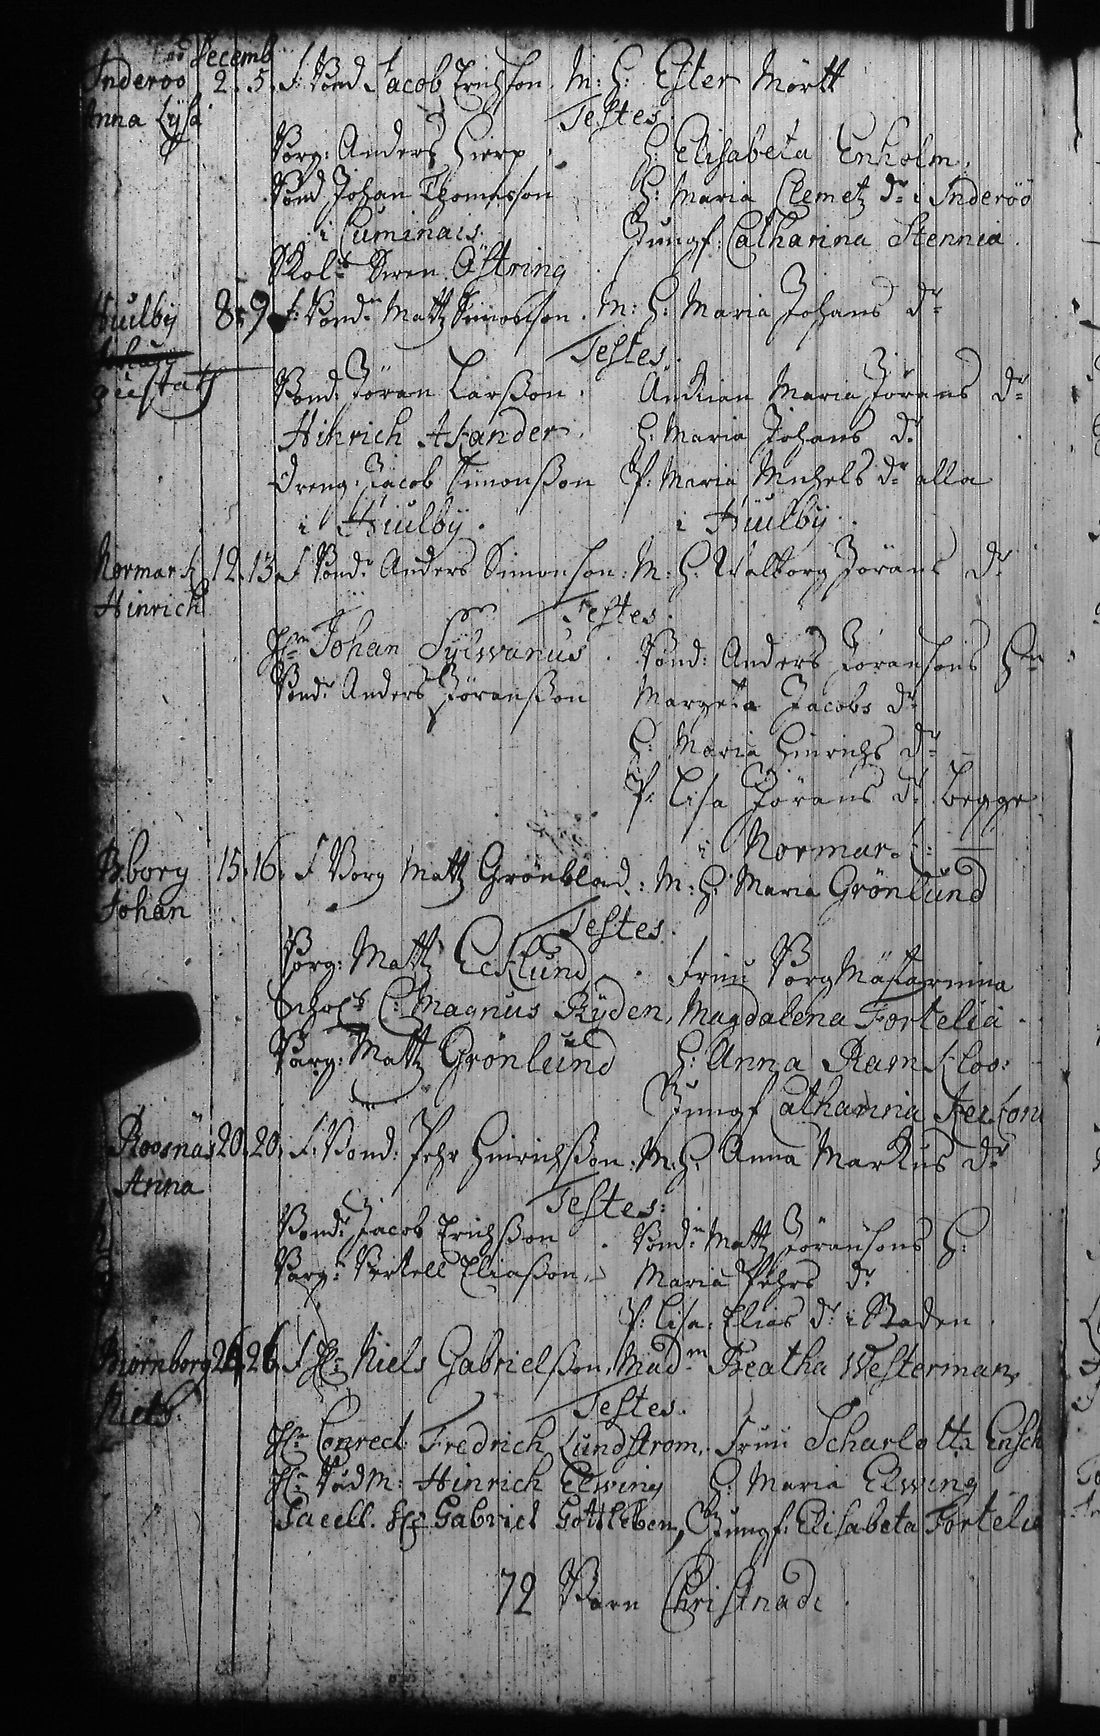 Decemb
Inderöö 2. 5. F: Bond Jacob Erichson. M: H: Ester Mörtt
Anna Lysa Testes.
Borg: Anders Hierp. H: Elisabeta Enholm.
Bond Johan Thomasson H: Maria Clemetz Dr i Inderöö
i Cuminais Jungf: Catharina Stennia.
Skol: Sven Östring
Huilby 8. 9. F: Bond: Matz Simonson. M: H: Maria Johans dr
Testes.
Gustaf Bond: Jöran Larsson. Änkian Maria Jörans Dr
Hinrich Askander. H: Maria Johans dr
Dreng: Jacob Simonsson P: Maria Michels dr alla
i Huilby. i Huilby.
Normark 12. 13. F Bond: Anders Simonson: M: H: Walborg Jörans dr
Hinrich Testes.
Hr Johan Sylwanus. Bond: Anders Jöransons Hu
Bond: Anders Jöransson Margeta Jacobs dr
H: Maria Hinrichs dr
P: Lisa Jörans dr begge
i Normark:
B:borg 15. 16. F Borg Matz Grönblad: M: H: Maria Grönlund
Johan Testes.
Borg: Matz Ecklund. Fruu Borgmästarinna
C: Magnus Ryden, Magdalena Fortelia.
Borg: Matz Grönlund H: Anna Ramskloo:
Jungf Catharina
Roosnäs 20. 20. F: Bond: Pehr Hinrichsson: M: H: Anna Markus Dr
Anna Testes:
Bond: Jacob Erichsson. Bond: Matz Jöransons H:
Borg: Bertell Eliasson Maria Pehrs dr
P: Lisa Elias dr i Staden.
Biörneborg 26. 26. F Hr Niels Gabrielsson, Madm Beatha Westerman.
Niels. Testes.
Hr Conrect. Fredrich Lundström. Fruu Scharlotta
Hr Rådm: Hinrich Elwing H: Maria Elwing
Sacell. Hr Gabriel Gottleben, Jungf: Elisabeta Fortelia
72 Barn Christnade.